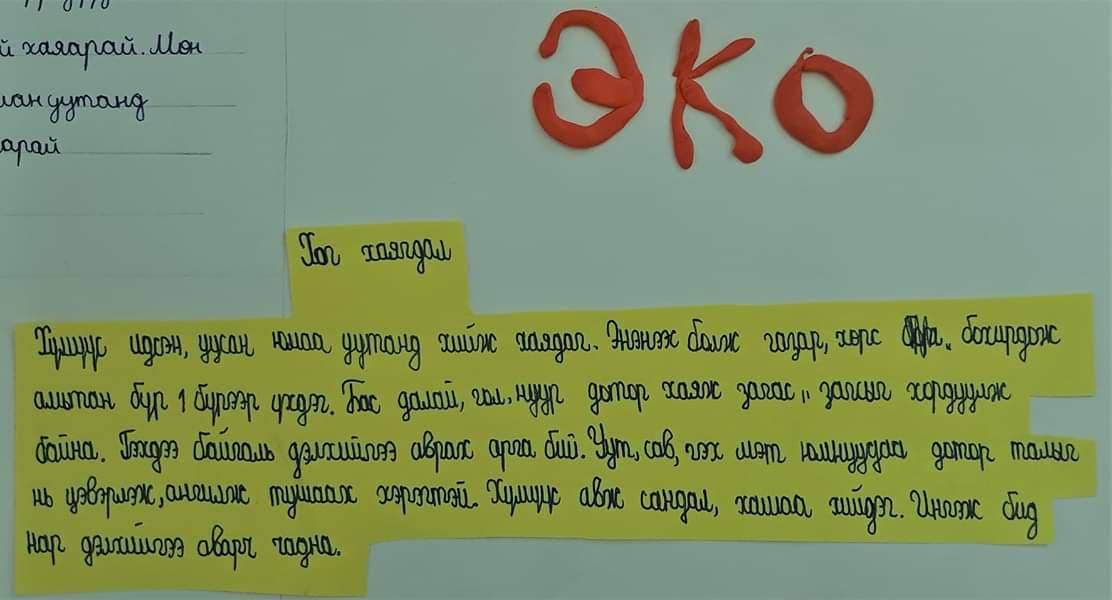 й хаярай. Мөн
уутанд
арай
ЭКО
Хог хаягдал
Хүмүүс идсэн, уусан юмаа уутанд хийж хаядаг. Энэнээс болж газар, хөрс бохирдож
амьтан бүр 1 бүрээр үхдэг. Бас далай, гол, нуур дотор хаяж загас,, загсыг хордуулж
байна. Гэхдээ байгаль дэлхийгээ аврах арга бий. Уут, сав, гэх мэт юмнуудаа дотор талыг
нь цэвэрлэж, ангилж тушаах хэрэгтэй. Хүмүүс авж сандал, хашаа хийдэг. Ингэж бид
нар дэлхийгээ аварч чадна.